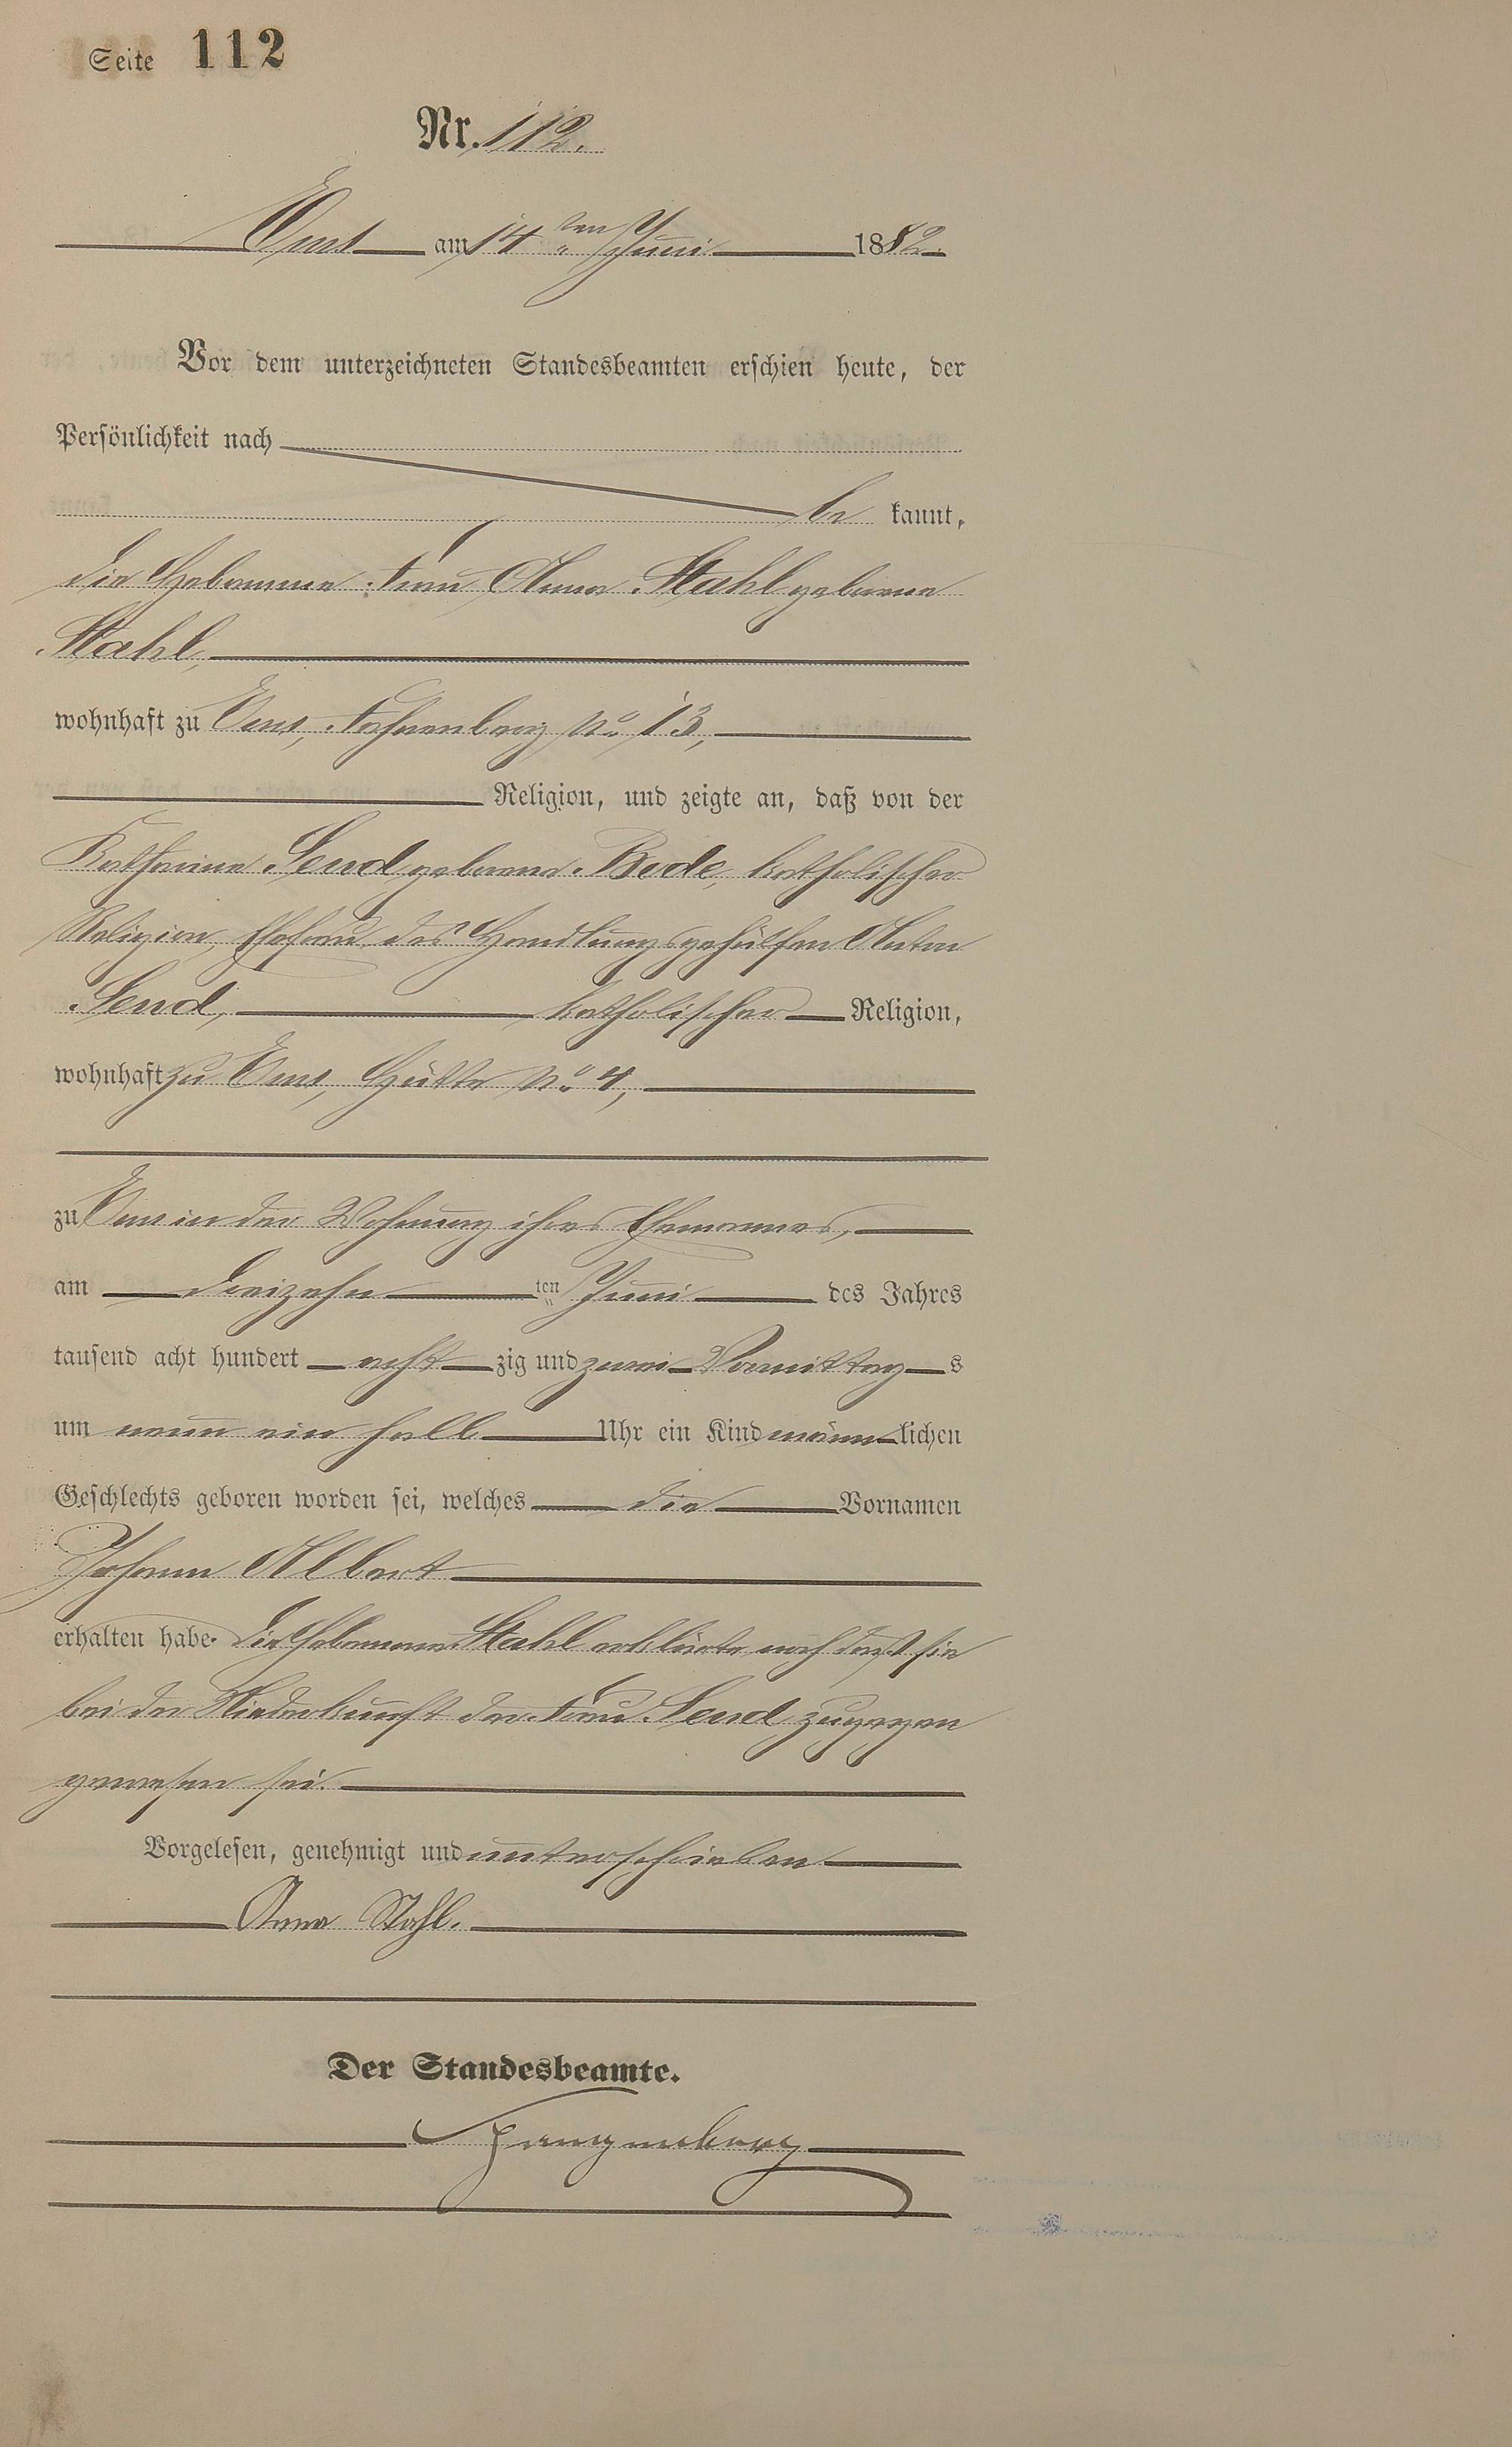 Seite 112
Nr. 112.
Ems am 14ten Juni 1882.
Vor dem unterzeichneten Standesbeamten erschien heute, der
Persönlichkeit nach
be kannt,
die Hebamme Frau Anna Stahl geborene
Stahl,
wohnhaft zu Ems, No. 13,
Religion, und zeigte an, daß von der
Katharina Send geborene Bode, katholischer
Religion, Ehefrau des Handlungsgehülfen Anton
Send, katholischer Religion,
wohnhaft zu Ems, Hütte No. 4,
zu Ems in der Wohnung ihres Ehemannes,
am dreizehn ten Juni des Jahres
tausend acht hundert acht zig und zwei Vormittag s
um neun ein halb Uhr ein Kind männ lichen
Geschlechts geboren worden sei, welches die Vornamen
Johann Albert
erhalten habe. Die Hebamme Stahl erklärte noch daß sie
bei der Niederkunft der Frau Send zugegen
gewesen sei.
Vorgelesen, genehmigt und unterschrieben
Anna Stahl.
Der Standesbeamte.